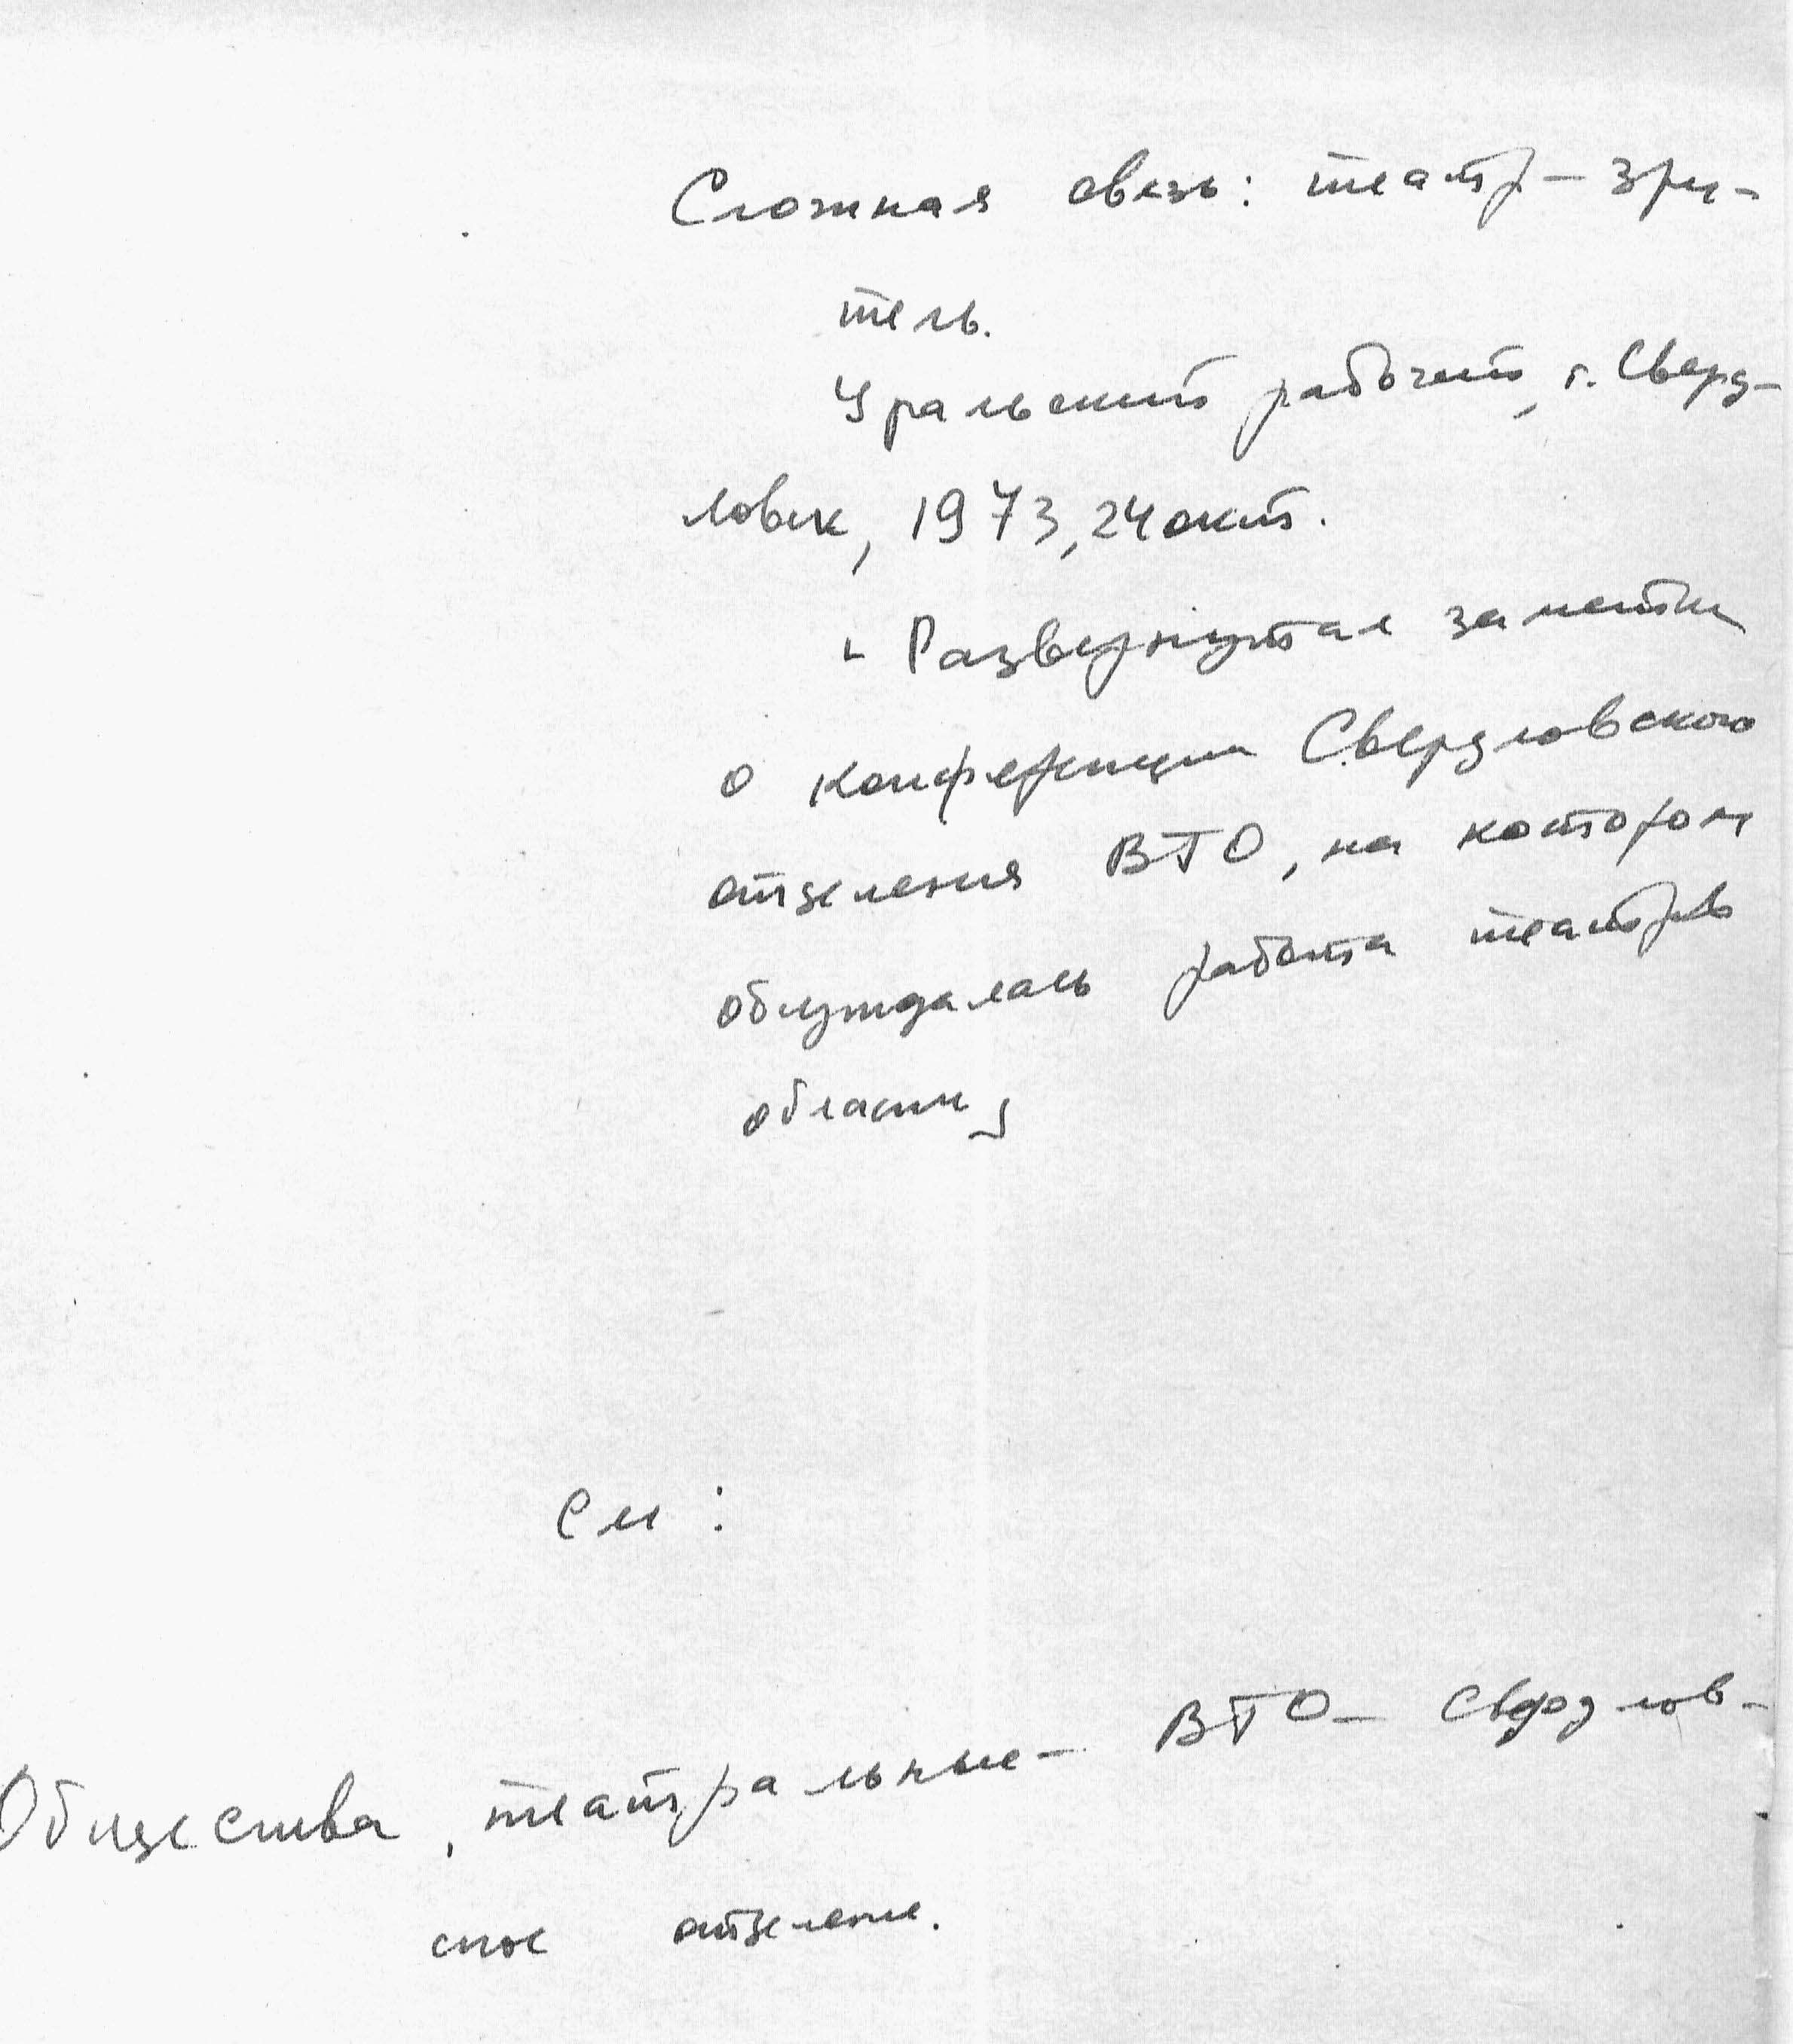 Сложная связь: театр — зри-
тель.
Уральский рабочий, г. Сверд-
ловск, 1973, 24 окт.
Развернутая заметка
о конференции Свердловского
отделения ВТО, на котором
обсуждалась работа театров
области
См:
Общества, театральные — ВТО — Свердлов-
ское отделение.